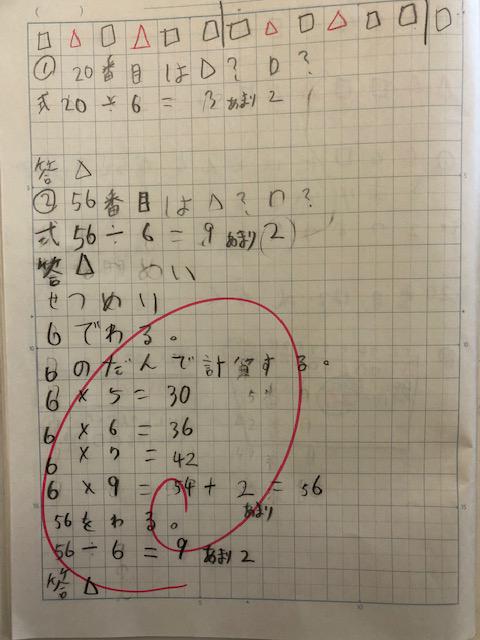 ( )
□ △ □ △ □ □ | □ △ □ △ □ □ | □
① 20番目は△？□？
式 20÷6＝3あまり2
答 △
② 56番目は△？□？
式 56÷6＝9あまり(2)
答 △ めい
せつめい
6でわる。
6のだんで計算する。
6×5＝30
6×6＝36
6×7＝42
6×9＝54＋2＝56
あまり
56をわる。
56÷6＝9あまり2
答 △